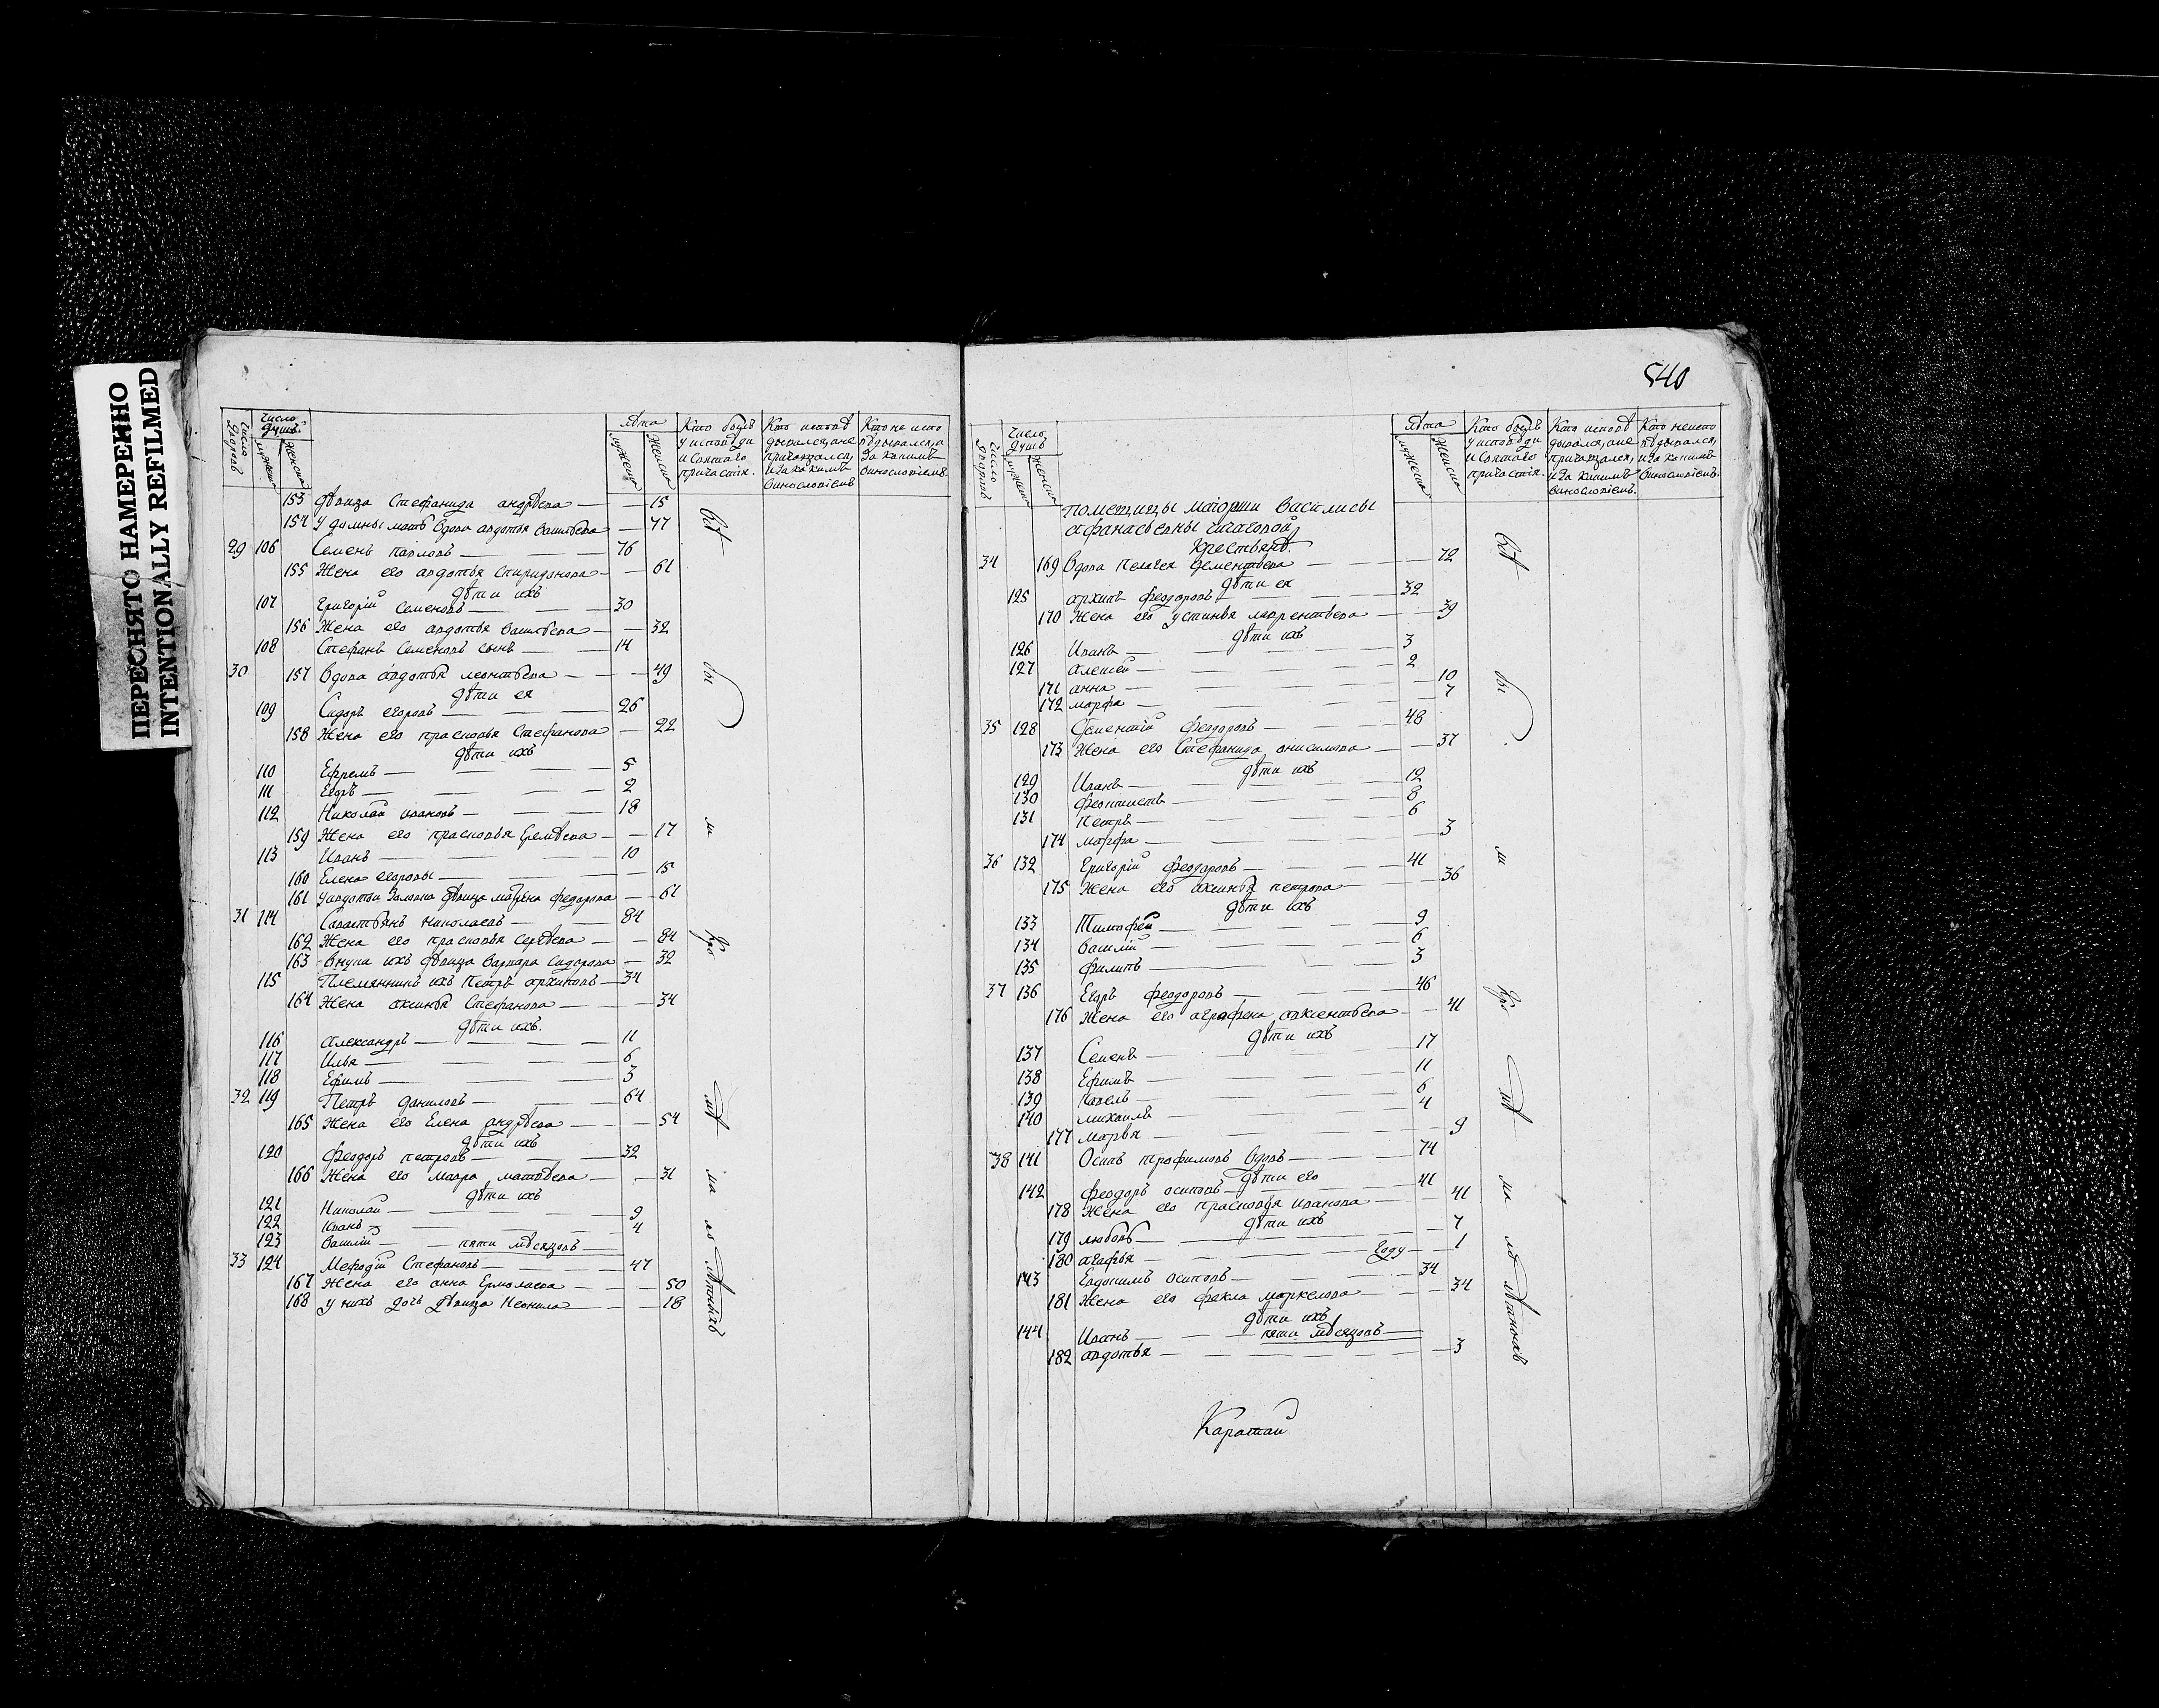 ПЕРЕСНЯТО НАМЕРЕННО
INTENTIONALLY REFILMED
Число дворовъ
Число душъ
мужеска
женска
лѣта
мужеска
женска
Кто былъ у исповѣди и святаго причастія.
Кто исповѣдывался, а не причащался, и за какимъ винословіемъ
Кто не исповѣдывался, и за какимъ винословіемъ.
153 дѣвица Стефанида андрѣева — 15
154 у домны мать вдова авдотья василѣева — 77
29 106 Семенъ павловъ — 76
155 Жена его авдотья Спиридонова — 61
дѣти ихъ
107 Григорій Семеновъ — 30
156 Жена его авдотья василѣева — 32
108 Стефанъ Семеновъ сынъ — 14
30 157 вдова авдотья леонтьева — 49
дѣти ея
109 Сидоръ егоровъ — 26
158 Жена его прасковья Стефанова — 22
дѣти ихъ
110 Ефремъ — 5
111 Егоръ — 2
112 Николай ивановъ — 18
159 Жена его прасковья — 17
113 Иванъ — 10
160 Елена егоровы — 15
161 у авдотьи золовка дѣвица матрена федорова — 61
31 114 Савастьянъ николаевъ — 84
162 Жена его прасковья сергѣева — 84
163 внука ихъ дѣвица варвара сидорова — 32
115 Племянникъ ихъ Петръ архиповъ — 34
164 Жена аксинья Стефанова — 34
дѣти ихъ.
116 Александръ — 11
117 Илья — 6
118 Ефимъ — 3
32 119 Петръ даниловъ — 64
165 Жена его Елена андрѣева — 54
дѣти ихъ
120 Феодоръ петровъ — 32
166 Жена его мавра матвѣева — 31
дѣти ихъ
121 Николай — 9
122 Иванъ — 4
123 Василій — пяти мѣсяцовъ
33 124 Мефодій Стефановъ — 47
167 Жена его анна Ермолаева — 50
168 у нихъ дочь дѣвица Неонила — 18
всѣ
бы
ли
кро
мѣ
ма
ло
лѣтнихъ
540
Число дворовъ
Число душъ
мужеска
женска
лѣта
мужеска
женска
Кто былъ у исповѣди и святаго причастія.
Кто исповѣдывался, а не причащался, и за какимъ винословіемъ.
Кто не исповѣдывался, и за какимъ винословіемъ.
помещицы маіорши василисы
афанасьевны чичаговой
крестьянѣ.
34 169 вдова пелагея — 72
дѣти ея
125 архипъ феодоровъ — 32
170 Жена его устинья лаврентьева — 39
дѣти ихъ
126 Иванъ — 3
127 Алексей — 2
171 анна — 10
172 марфа — 7
35 128 феодоровъ — 48
173 Жена его Стефанида онисимова — 37
дѣти ихъ
129 Иванъ — 12
130 Феоктистъ — 8
131 Петръ — 6
174 марфа — 3
36 132 Григорій Феодоровъ — 41
175 Жена его аксинья петрова — 36
дѣти ихъ
133 Тимофей — 9
134 Василій — 6
135 Филипъ — 3
37 136 Егоръ феодоровъ — 46
176 Жена его аграфена авксентьева — 41
дѣти ихъ
137 Семенъ — 17
138 Ефимъ — 11
139 Павелъ — 6
140 михаилъ — 4
177 марья — 9
38 141 Осипъ трофимовъ вдовъ — 74
дѣти его
142 феодоръ осиповъ — 41
178 Жена его прасковья иванова — 41
дѣти ихъ
179 любовь — 7
180 агафья — году — 1
143 Евдокимъ осиповъ — 34
181 Жена его фекла маркелова — 34
дѣти ихъ
144 Иванъ — пяти мѣсяцовъ
182 авдотья — 3
всѣ
бы
ли
кро
мѣ
ма
ло
лѣтныхъ
Каратай